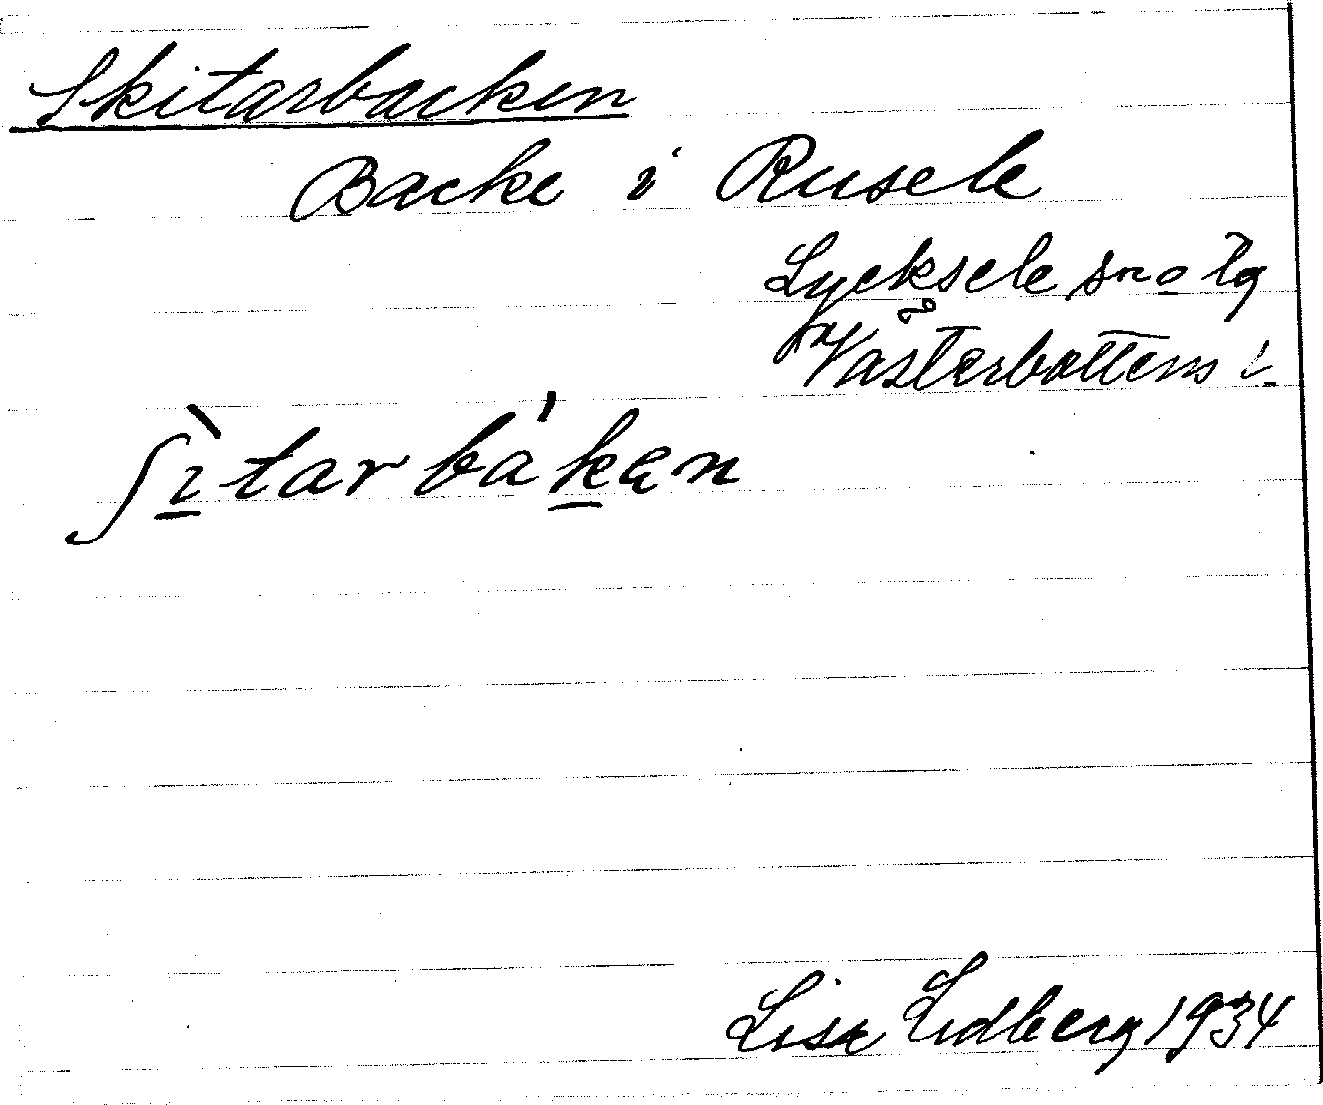 Skitarbacken
Backe i Rusele
Lycksele sn o tg
Västerbottens l.
ʃìtarbákən
Lisa Lidberg 1934